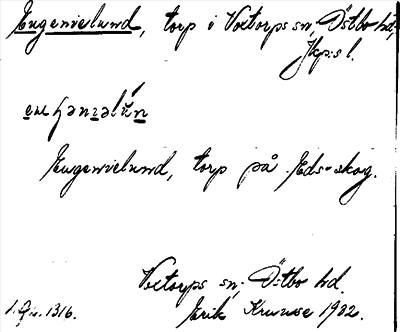 Eugenielund, torp i Voxtorps sn, Östbo hd,
Jkps l.
Eugenielund, torp på Eds-skog.
Voxtorps sn, Östbo hd.
Erik Kruuse 1902.
1316.